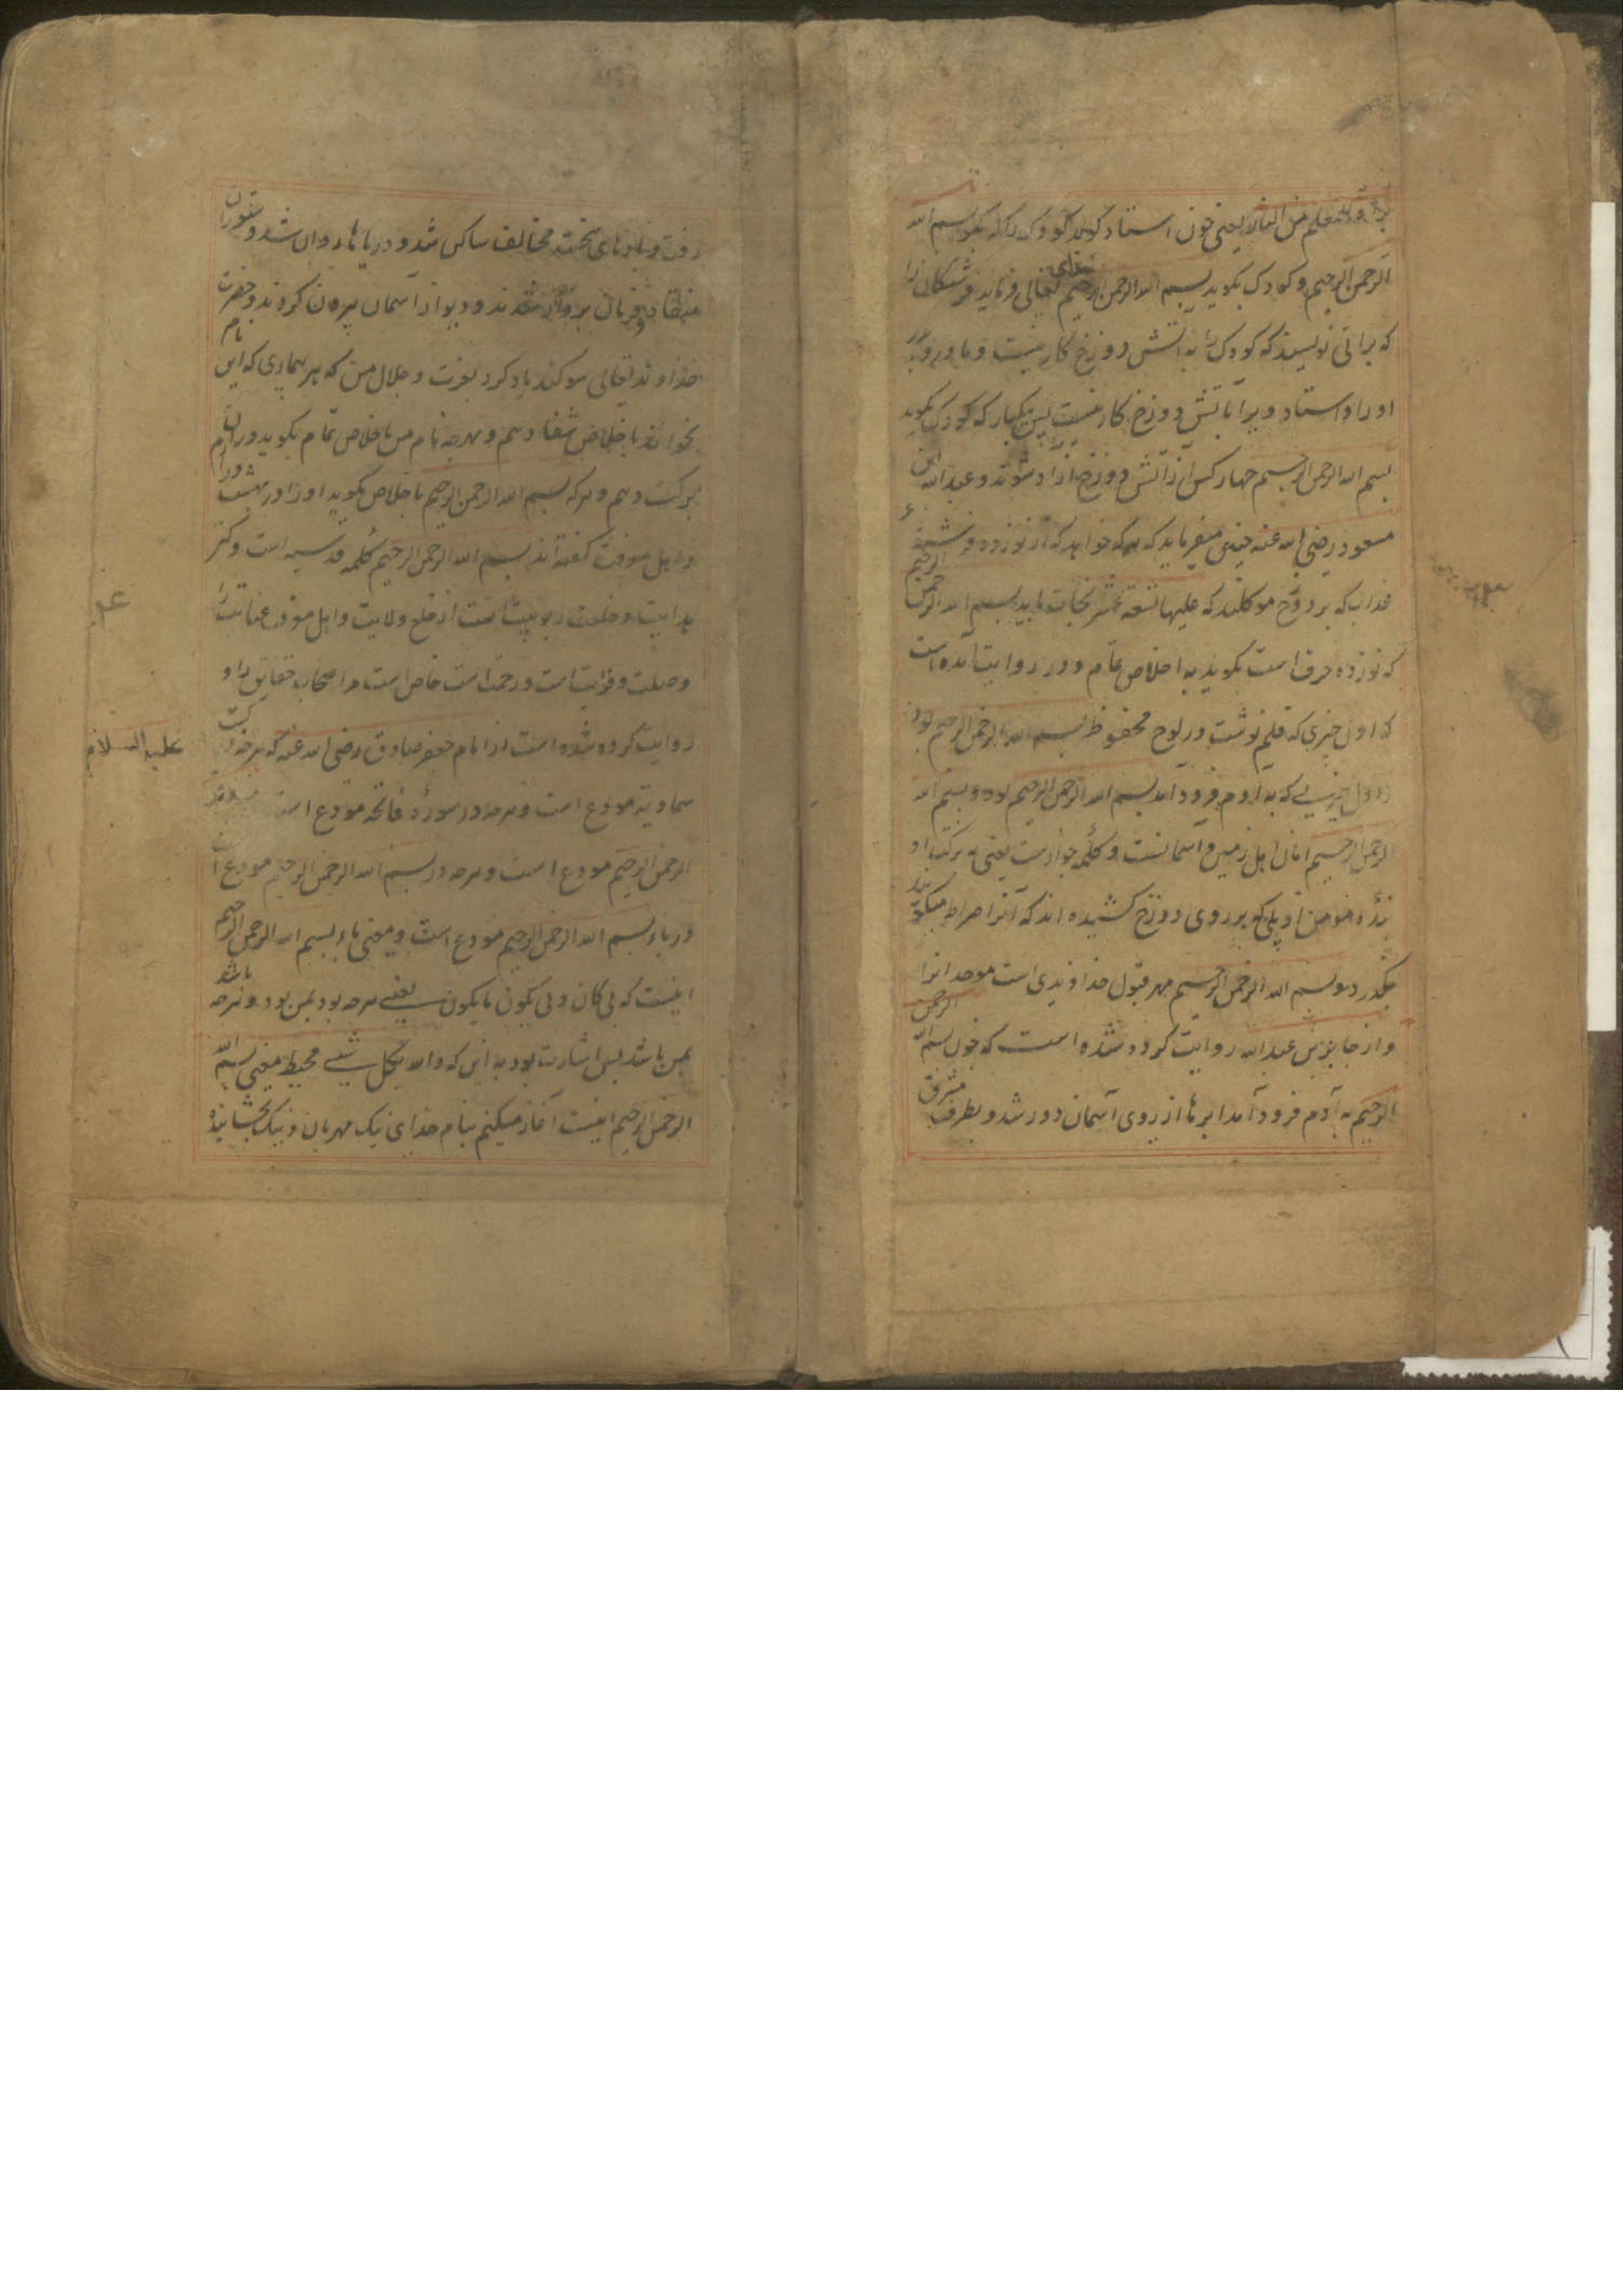 براة وللمعلم من النار یعنی چون استاد کوید کودک را که بکو بسم الله
الرحمن الرحیم و کودک بکوید بسم الله الرحمن الرحیم خدای تعالی فرماید فرشتکان را
که براتی نویسند که کودک را به آتش دوزخ کار نیست و مادر و پدر
او را و استاد ویرا با آتش دوزخ کار نیست پس یکبار که کودک بکوید
بسم الله الرحمن الرحیم چهار کس از آتش دوزخ آزاد شوند و عبد الله ابن
مسعود رضی الله عنه چنین میفرماید که هر که خواهد که از نوزده فرشتهٔ
عذاب که بر دوزخ موکلند که علیها تسعة عشر نجات یابد بسم الله الرحمن الرحیم
که نوزده حرف است بکوید به اخلاص تمام و در روایت آمده است
که اول چیزی که قلم نوشت در لوح محفوظ بسم الله الرحمن الرحیم بود
و اول چیزیکه به آدم فرود آمد بسم الله الرحمن الرحیم بود و بسم الله
الرحمن الرحیم امان اهل زمین و آسمانست و کلمهٔ جوازست یعنی به برکت او
بنده مؤمن از پلی که بر روی دوزخ کشیده اند که آنرا صراط میکویند
بکذرد و بسم الله الرحمن الرحیم مهر قبول خداوندی است موحدانرا
و از جابر بن عبد الله روایت کرده شده است که چون بسم الله الرحمن
الرحیم به آدم فرود آمد ابرها از روی آسمان دور شد و بطرف مشرق
رفت و بادهای سخت مخالف ساکن شد و دریاها روان شد و ستوران
منقاد و فرمان بردار شدند و دیو از آسمان بیرون کردند و حضرت
خداوند تعالی سوکند یاد کرد بعزت و جلال من که هر بیماری که این نام
بخواند باخلاص شفا دهم و بهرچه نام من باخلاص تمام بکوید در آن
برکت دهم و هر که بسم الله الرحمن الرحیم باخلاص بکوید او را در بهشت درآرم
و اهل معرفت کفته اند بسم الله الرحمن الرحیم کلمه قدسیه است و کنز
هدایت و خلعت ربوبیت است از خلع ولایت و اهل معرفت عنایت را
وصلت و قرابت است و رحمت است خاص است مر اصحاب حقایق را و
روایت کرده شده است از امام جعفر صادق رضی الله عنه که هرچه در کتب
علیه السلام
سماویه مودع است و هرچه در سورهٔ فاتحه مودع است در بسم الله
الرحمن الرحیم مودع است و هرچه در بسم الله الرحمن الرحیم مودع است
در باء بسم الله الرحمن الرحیم مودع است و معنی باء بسم الله الرحمن الرحیم
اینست که بی کان و بی یکون ما یکون یعنی هرچه بود بمن بود و هرچه باشد
بمن باشد پس اشارت بود به این که و الله بکل شیء محیط معنی بسم الله
الرحمن الرحیم اینست آغاز میکنم بنام خدای نیک مهربان و نیک بخشاینده